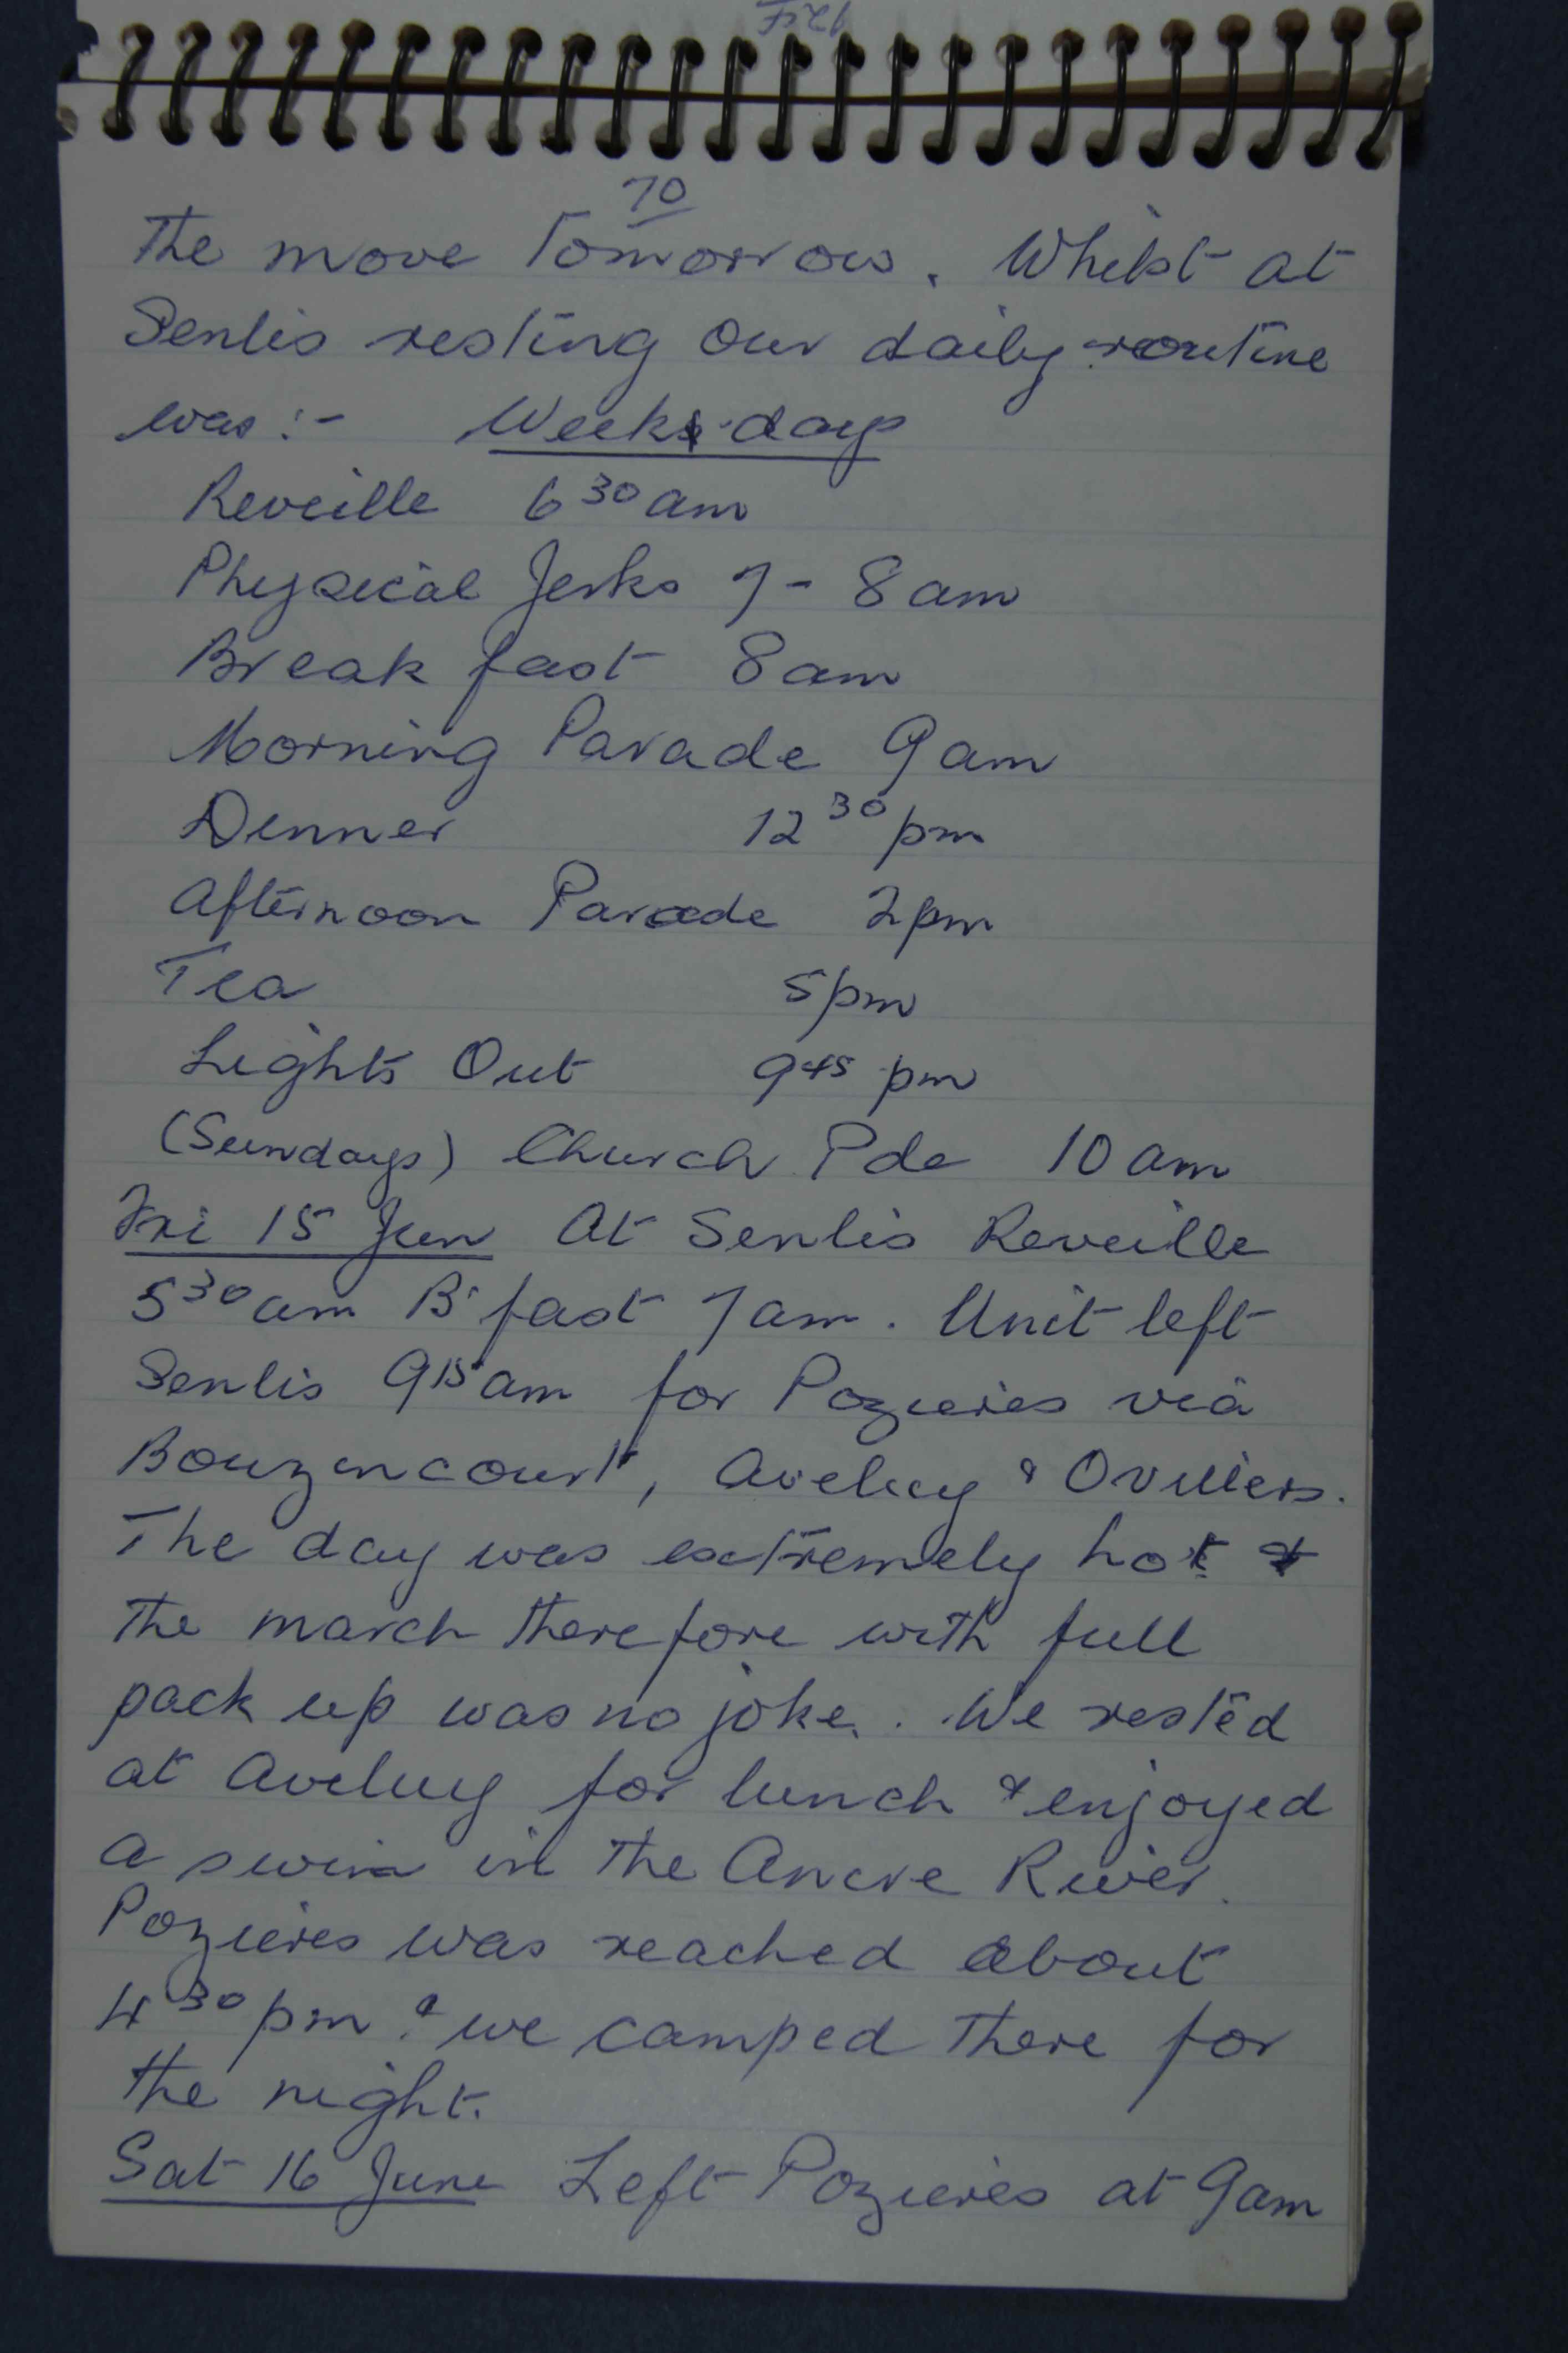 70
the move Tomorrow. Whilst at
Senlis resting our daily routine
was :- Week days
Reveille 6 30 am
Physical Jerks 7 - 8 am
Break fast 8 am
Morning Parade 9 am
Dinner 12 30 pm
Afternoon Parade 2 pm
Tea 5 pm
Lights Out 9 45 pm
(Sundays) Church Pde 10 am
Fri 15 Jun At Senlis Reveille
5 30 am B'fast 7 am. Unit left
Senlis 9 15 am for Pozieres via
Bouzencourt, Aveluy & Ovillers.
The day was extremely hot &
the march therefore with full
pack up was no joke. We rested
at Aveluy for lunch & enjoyed
a swim in the Ancre River.
Pozieres was reached about
4 30 pm & we camped there for
the night.
Sat 16 June Left Pozieres at 9am